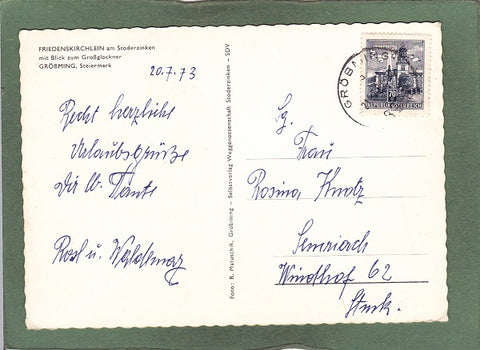 FRIEDENSKIRCHLEIN am Stoderzinken
mit Blick zum Großglockner
GRÖBMING, Steiermark
20.7.73
Recht herzliche
Urlaubsgrüße
Dir lb. Tante
Rosl u. Waldemar
Foto: R. Matuschik, Gröbming — Selbstverlag Weggenossenschaft Stoderzinken — SDV
GRÖBMING
REPUBLIK ÖSTERREICH
Sg.
Frau
Rosina Knotz
Semriach
Windhof 62
Stmk.